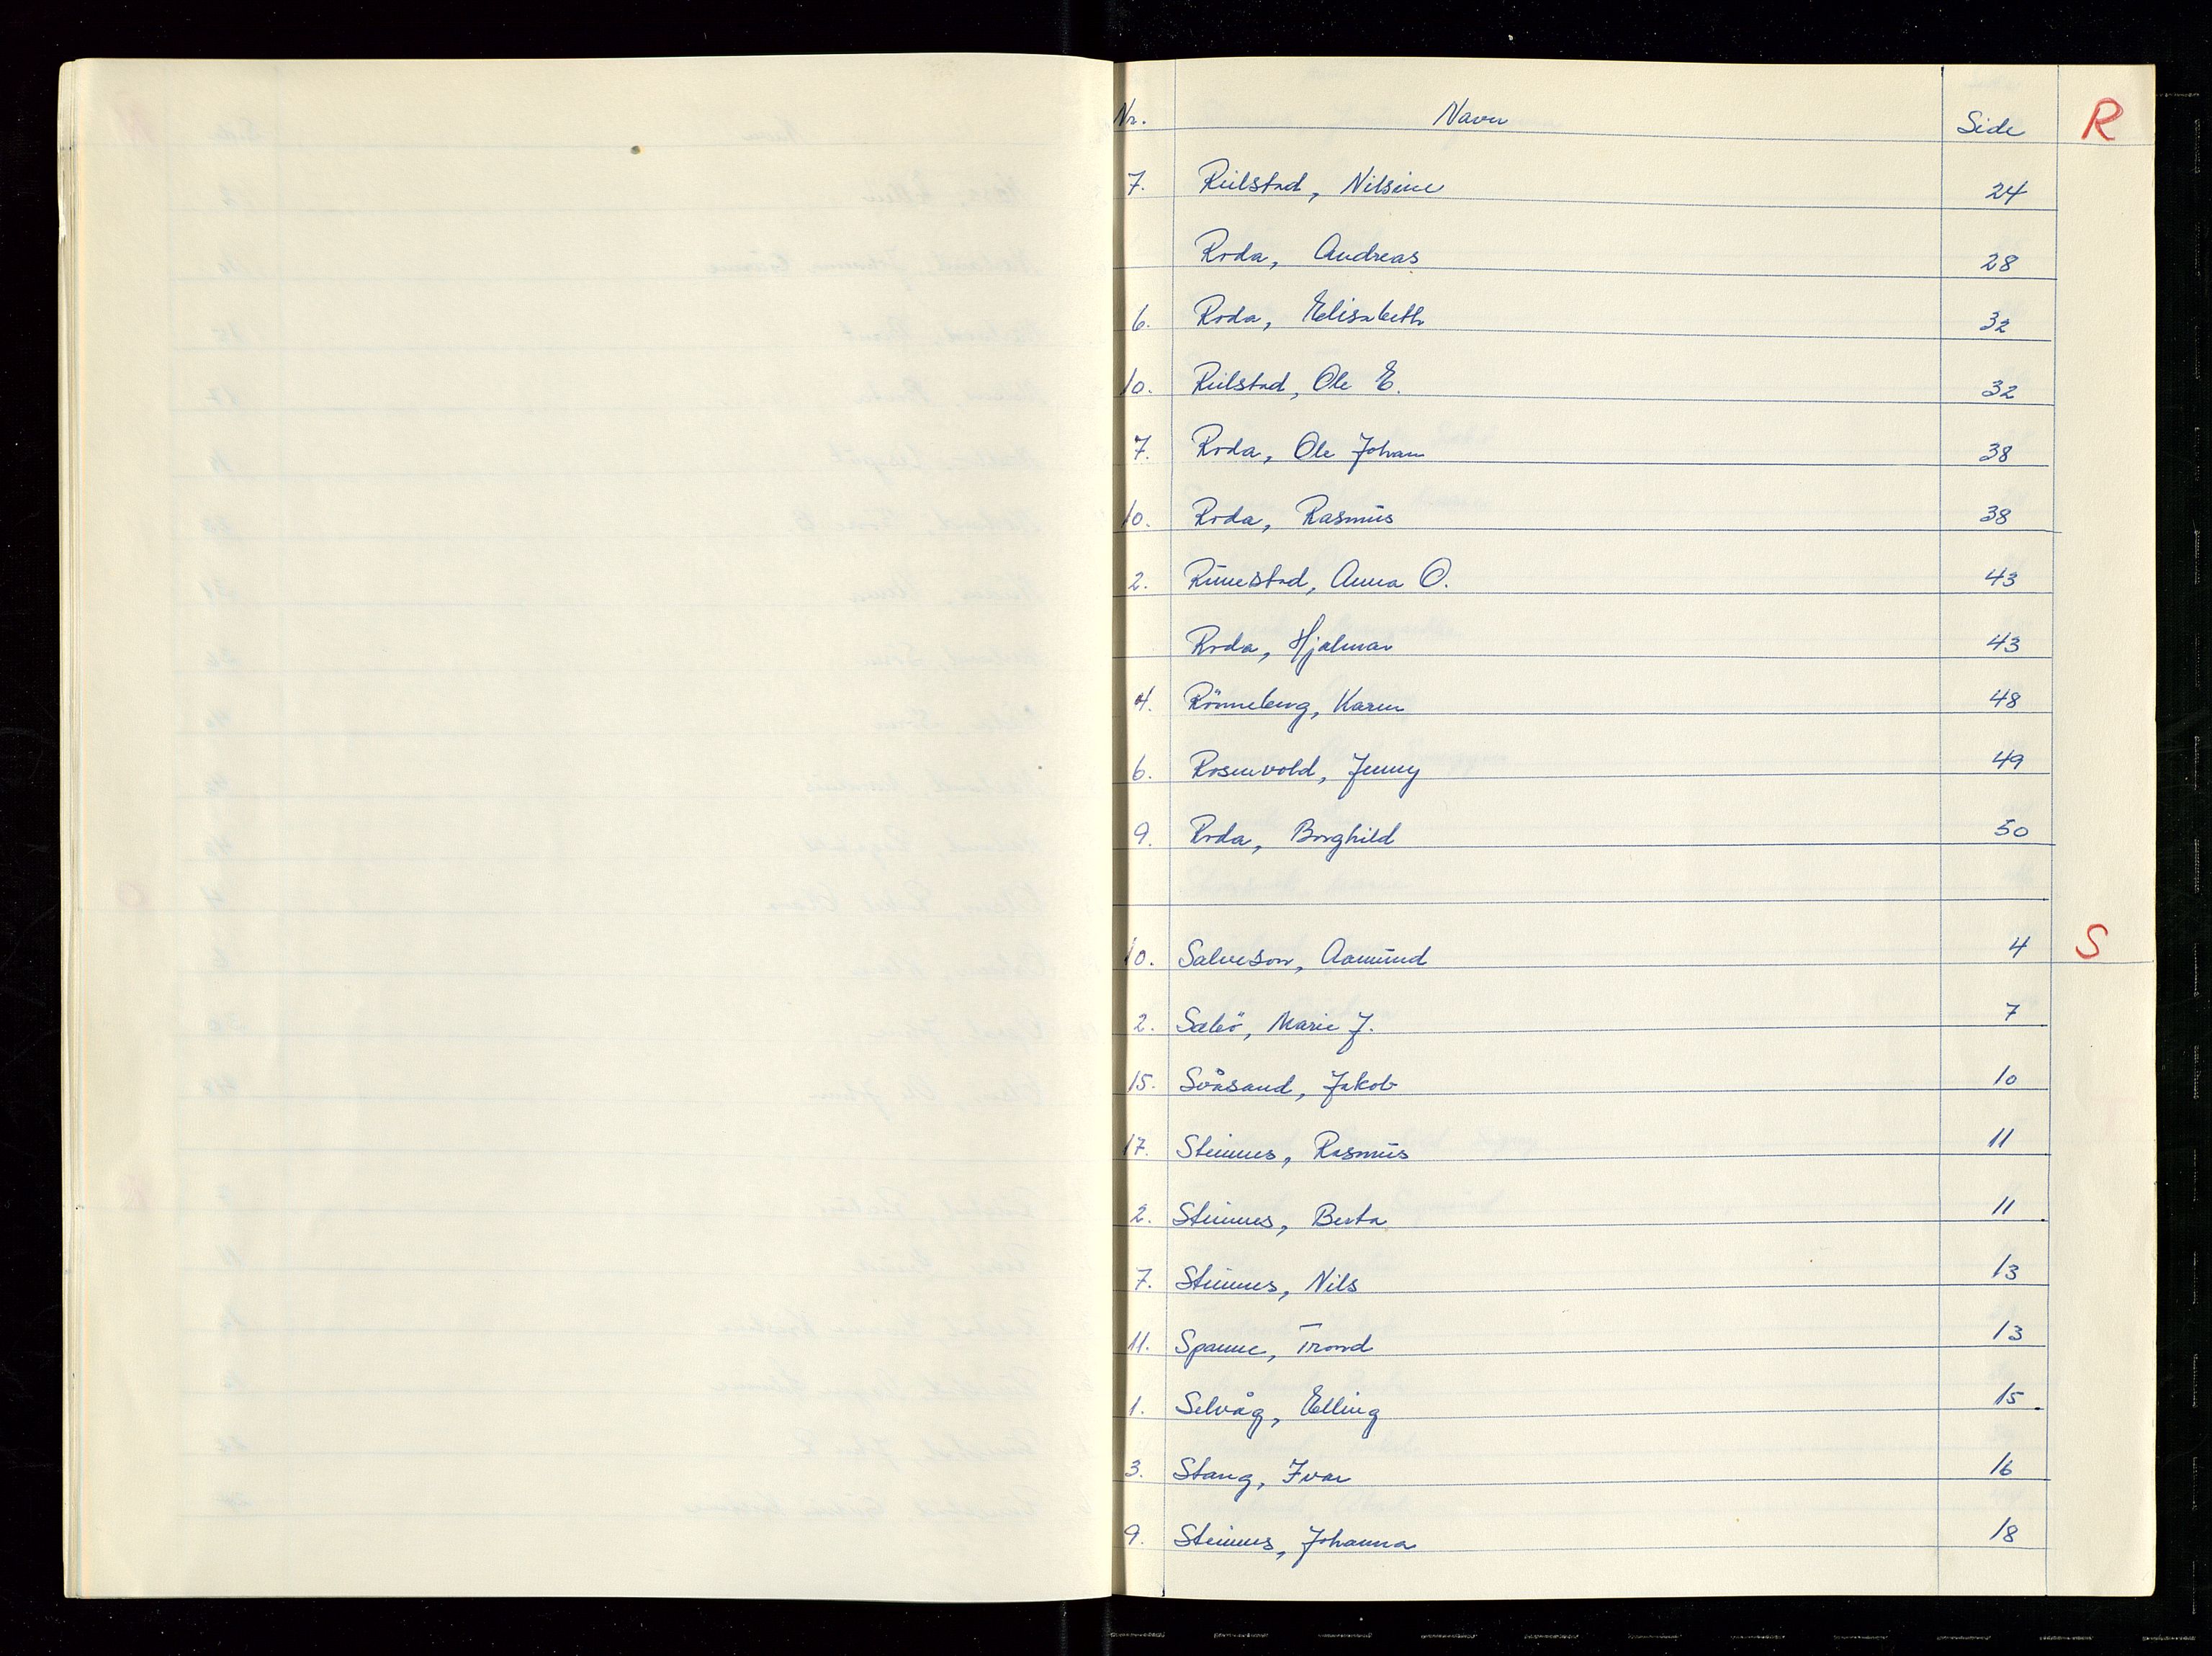 Nr. Navn Side R
7. Reilstad, Nilsine 24
Roda, Andreas 28
6. Roda, Elisabeth 32
10. Reilstad, Ole E. 32
7. Roda, Ole Johan 38
10. Roda, Rasmus 38
2. Runestad, Anna O. 43
Roda, Hjalmar 43
4. Rönneberg, Karen 48
6. Rosenvold, Jenny 49
9. Roda, Borghild 50
10. Salveson, Aamund 4 S
2. Sabö, Marie J. 7
15. Svåsand, Jakob 10
17. Steinnes, Rasmus 11
2. Steinnes, Berta 11
7. Steinnes, Nils 13
11. Spanne, Trond 13
1. Selvåg, Elling 15
3. Stang, Ivar 16
9. Steinnes, Johanna 18